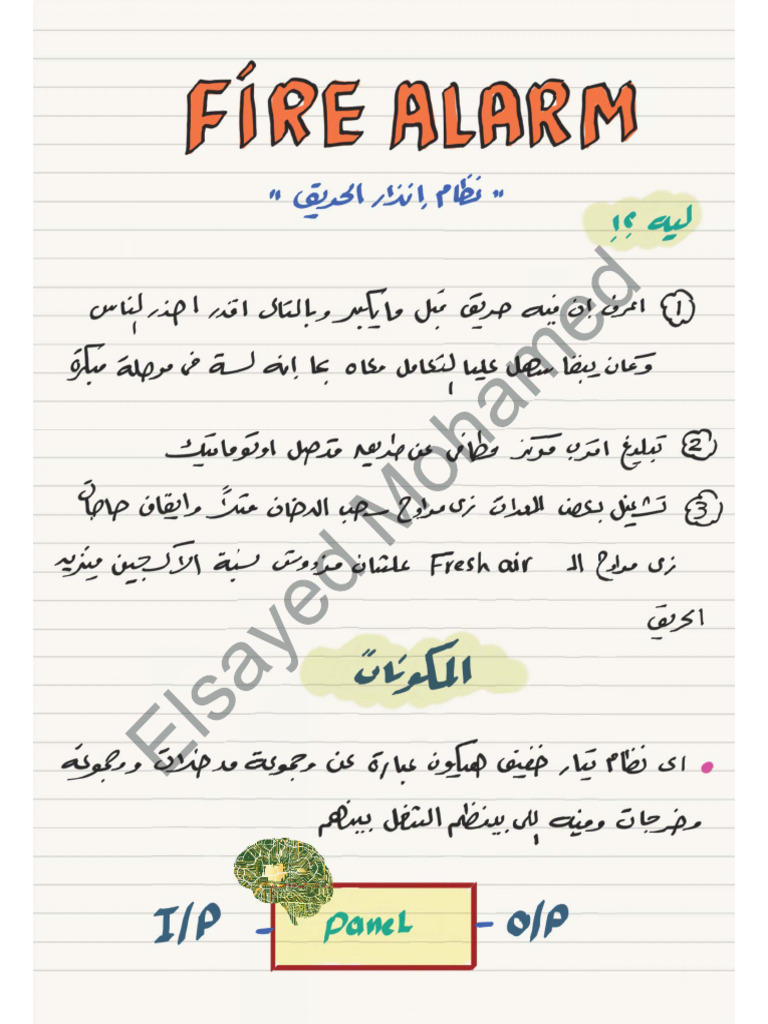 FIRE ALARM
"نظام إنذار الحريق"
ليه ؟!
① اعرف إن فيه حريق قبل ما يكبر وبالتالى اقدر احذر الناس
وكمان يبقا سهل عليا التعامل معاه بما إنه لسة فى مرحلة مبكرة
② تبليغ اقرب مركز مطافى عن طريق متصل اوتوماتيك
③ تشغيل بعض المعدات زى مراوح سحب الدخان مثلاً وايقاف حاجات
زى مراوح الـ Fresh air علشان مزودش نسبة الأكسجين فيزيد
الحريق
المكونات
• اى نظام تيار خفيف هيكون عبارة عن مجموعة مدخلات ومجموعة
مخرجات وفيه اللى بينظم الشغل بينهم
I/P - Panel - O/P
Elsayed Mohamed